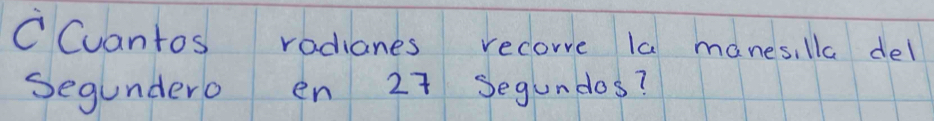 ¿Cuantos radianes recorre la manesilla del
Segundero en 27 Segundos?